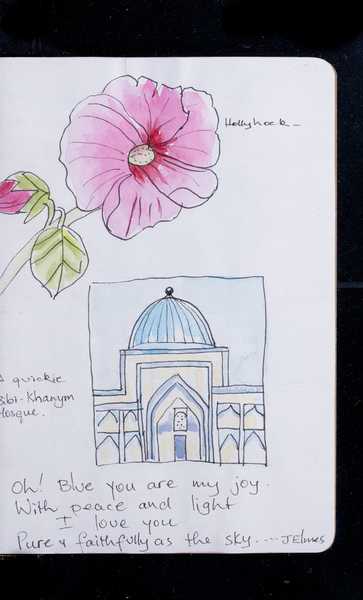 Hollyhock –
A quickie
Bibi-Khanym
Mosque.
Oh! Blue you are my joy.
With peace and light
I love you
Pure & faithfully as the sky.... JElmes